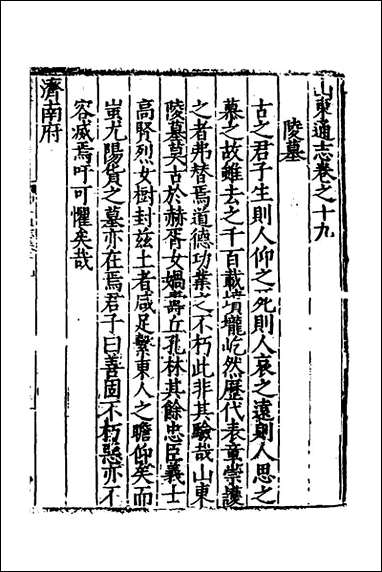 山東通志卷之十九
陵墓
古之君子生則人仰之死則人哀之遠則人思之
慕之故雖去之千百載墳壠屹然歷代表章崇護
之者弗替焉道德功業之不朽此非其驗哉山東
陵墓莫古於赫胥女媧壽丘孔林其餘忠臣義士
高賢烈女樹封兹土者咸足繫東人之瞻仰矣而
蚩尤陽貨之墓亦在焉君子曰善固不朽惡亦不
容滅焉吁可懼矣哉
濟南府